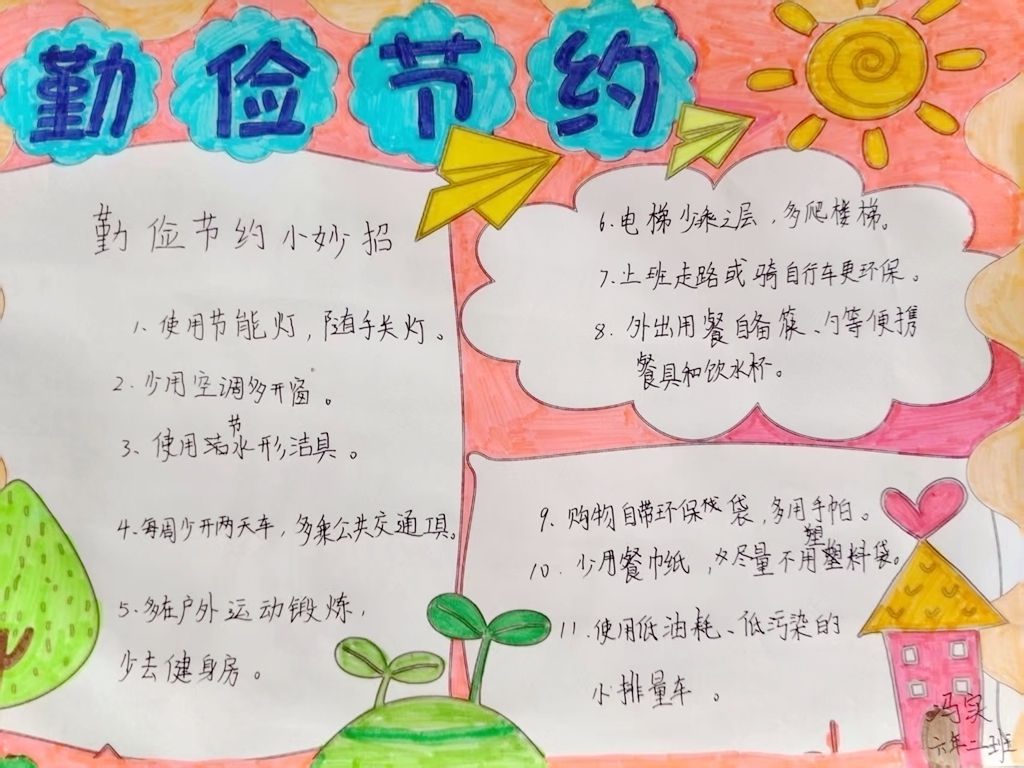 勤俭节约
勤俭节约小妙招
1. 使用节能灯，随手关灯。
2. 少用空调多开窗。
3. 使用节水形洁具。
4. 每周少开两天车，多乘公共交通工具。
5. 多在户外运动锻炼，
少去健身房。
6. 电梯少乘之层，多爬楼梯。
7. 上班走路或骑自行车更环保。
8. 外出用餐自备筷、勺等便携
餐具和饮水杯。
9. 购物自带环保袋，多用手帕。
10. 少用餐巾纸，尽量不用塑料袋。
11. 使用低油耗、低污染的
小排量车。
冯实
六年二班